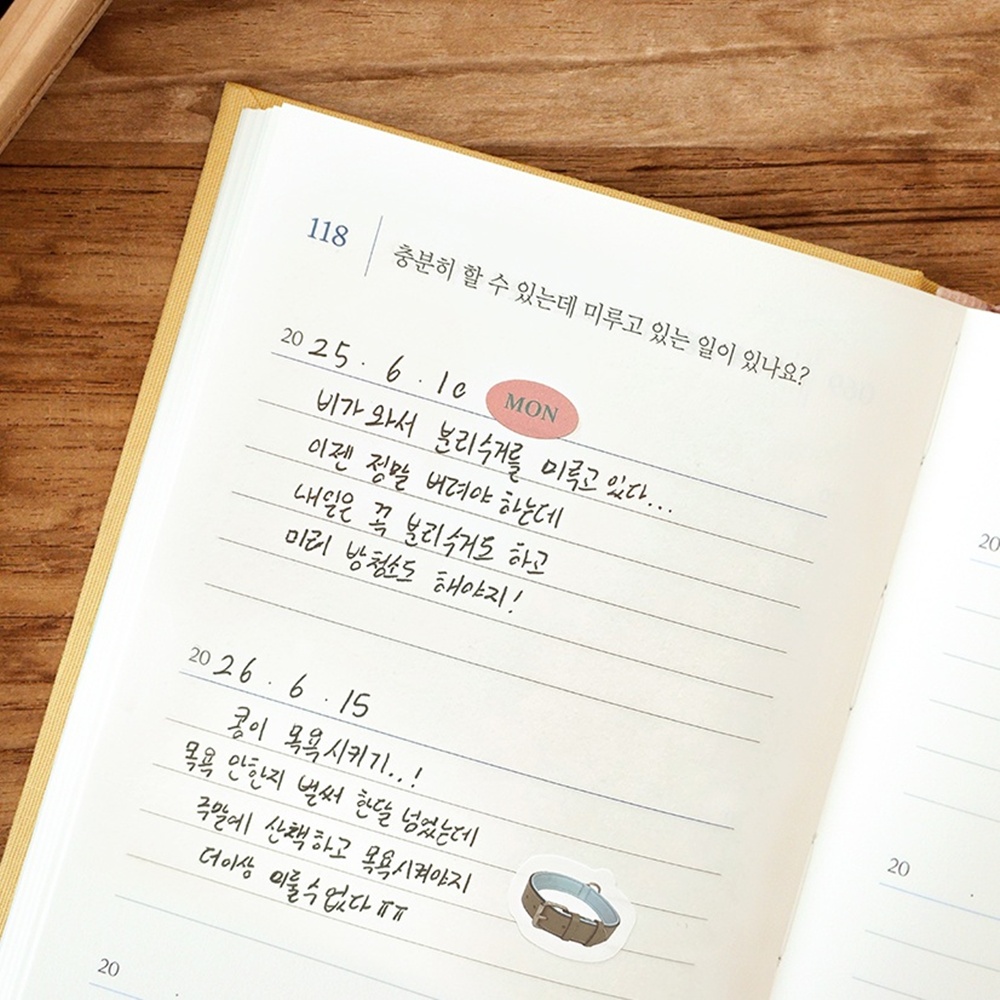 118
충분히 할 수 있는데 미루고 있는 일이 있나요?
2025 . 6 . 10 MON
비가 와서 분리수거를 미루고 있다...
이젠 정말 버려야 하는데
내일은 꼭 분리수거도 하고
미리 방청소도 해야지!
2026 . 6 . 15
콩이 목욕시키기..!
목욕 안한지 벌써 한달 넘었는데
주말에 산책하고 목욕시켜야지
더이상 미룰수없다 ㅠㅠ
20
20
20